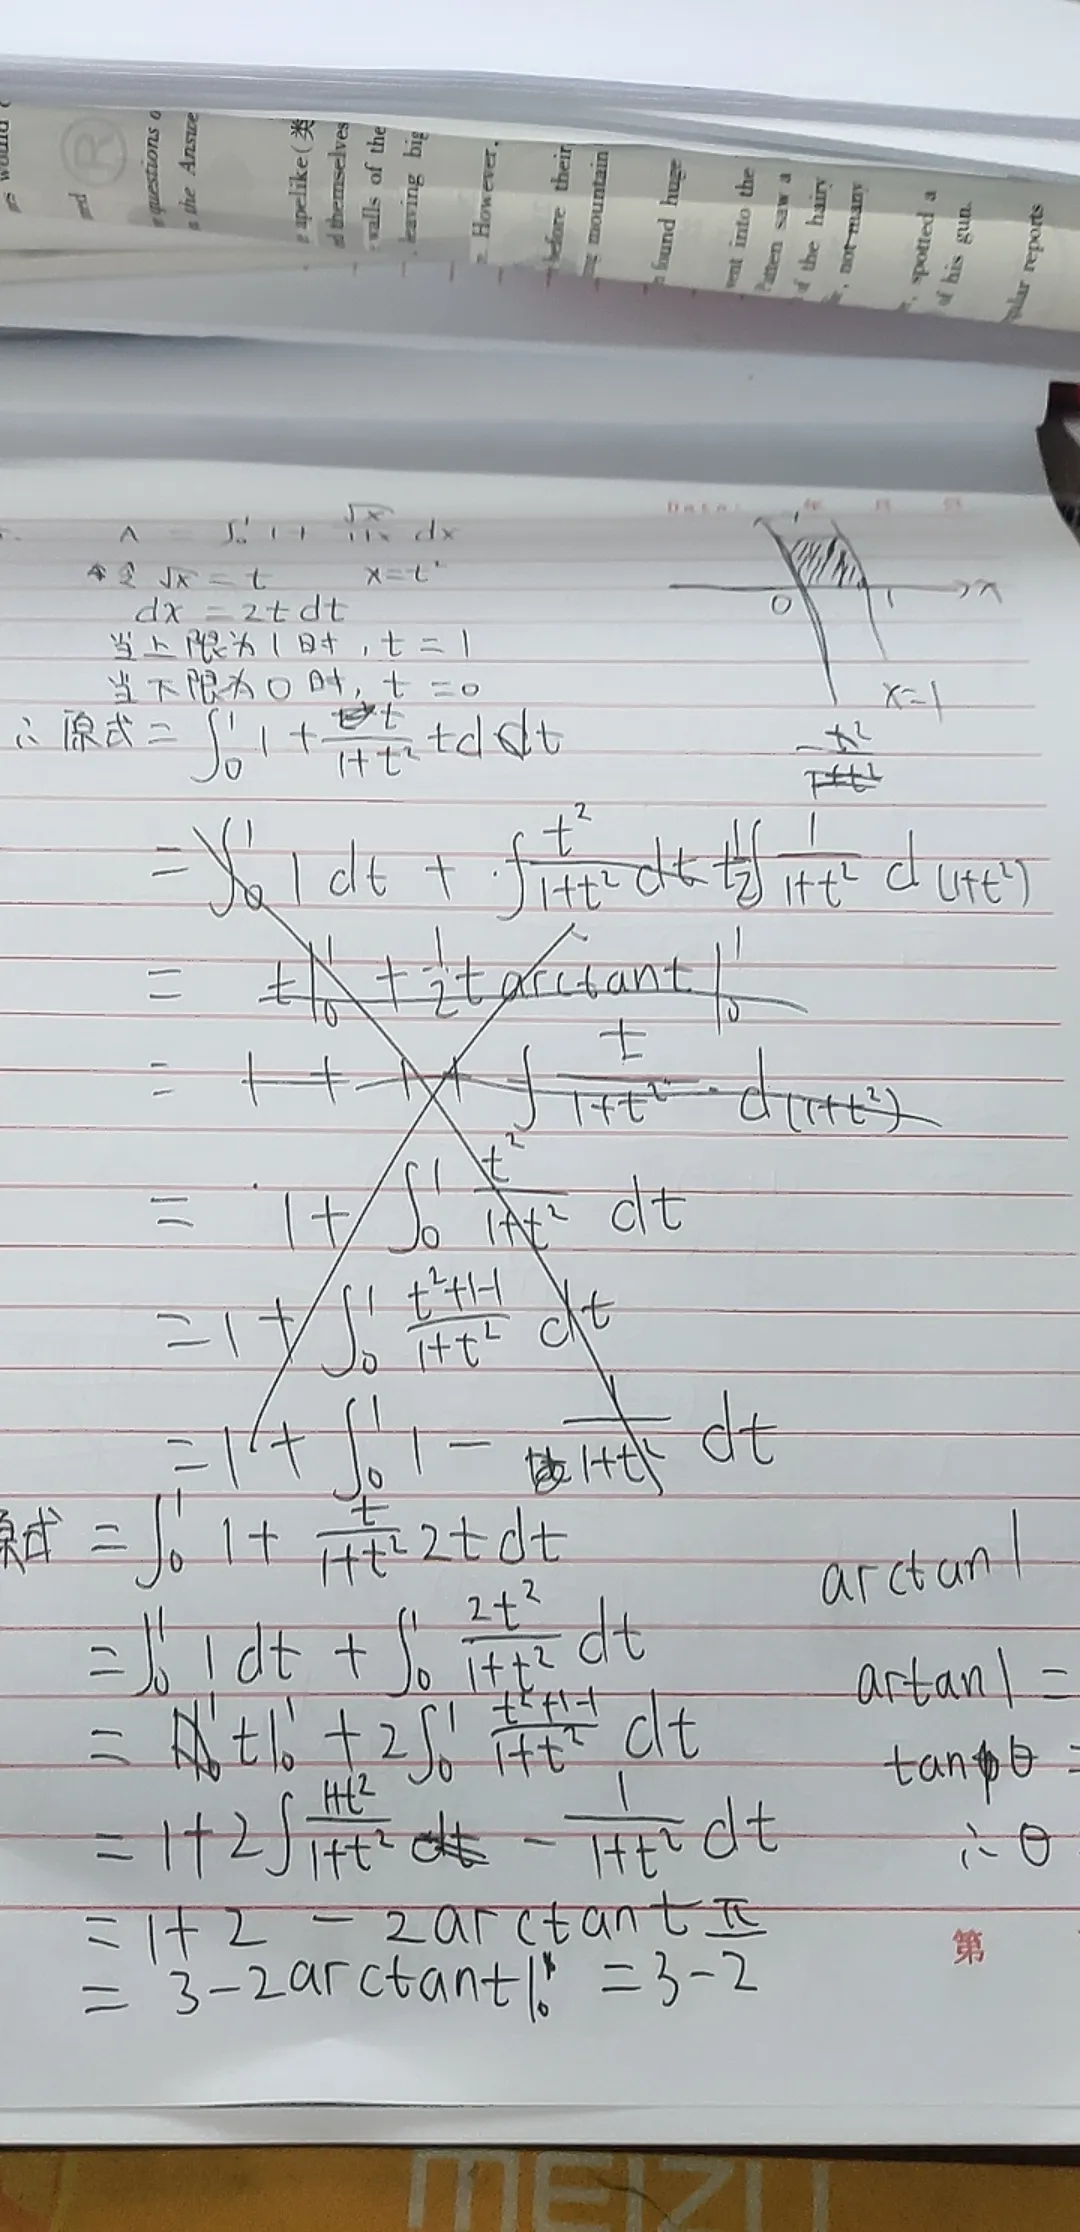 would
R
and
questions o
the Answe
apelike (类
d themselves
walls of the
leaving big
However,
before their
mountain
found huge
went into the
Patten saw a
of the hairy
, not many
, spotted a
of his gun.
ular reports
Date: 年 月 日
A = ∫₀¹ 1+ √x/(1+x) dx
令 √x = t x=t²
dx = 2t dt
当上限为1时, t = 1
当下限为0时, t = 0
0 1 x
x=1
∴ 原式 = ∫₀¹ 1 + t/(1+t²) td dt
-t²/(1+t²)
= ∫₀¹ 1 dt + ∫ t²/(1+t²) dt + 1/2 ∫ 1/(1+t²) d(1+t²)
= t|₀¹ + 1/2 t arctan t |₀¹
= 1 + ∫ t/(1+t²) · d(1+t²)
= 1 + ∫₀¹ t²/(1+t²) dt
= 1 + ∫₀¹ (t²+1-1)/(1+t²) dt
= 1 + ∫₀¹ 1 - 1/(1+t²) dt
原式 = ∫₀¹ 1 + t/(1+t²) 2t dt
arctan 1
= ∫₀¹ 1 dt + ∫₀¹ 2t²/(1+t²) dt
artan 1 =
= t|₀¹ + 2∫₀¹ (t²+1-1)/(1+t²) dt
tan θ =
= 1+2∫ (1+t²)/(1+t²) - 1/(1+t²) dt
∴ θ
= 1+2 - 2 arctan t π
第
= 3-2arctan t|₀¹ = 3-2
MEIZU